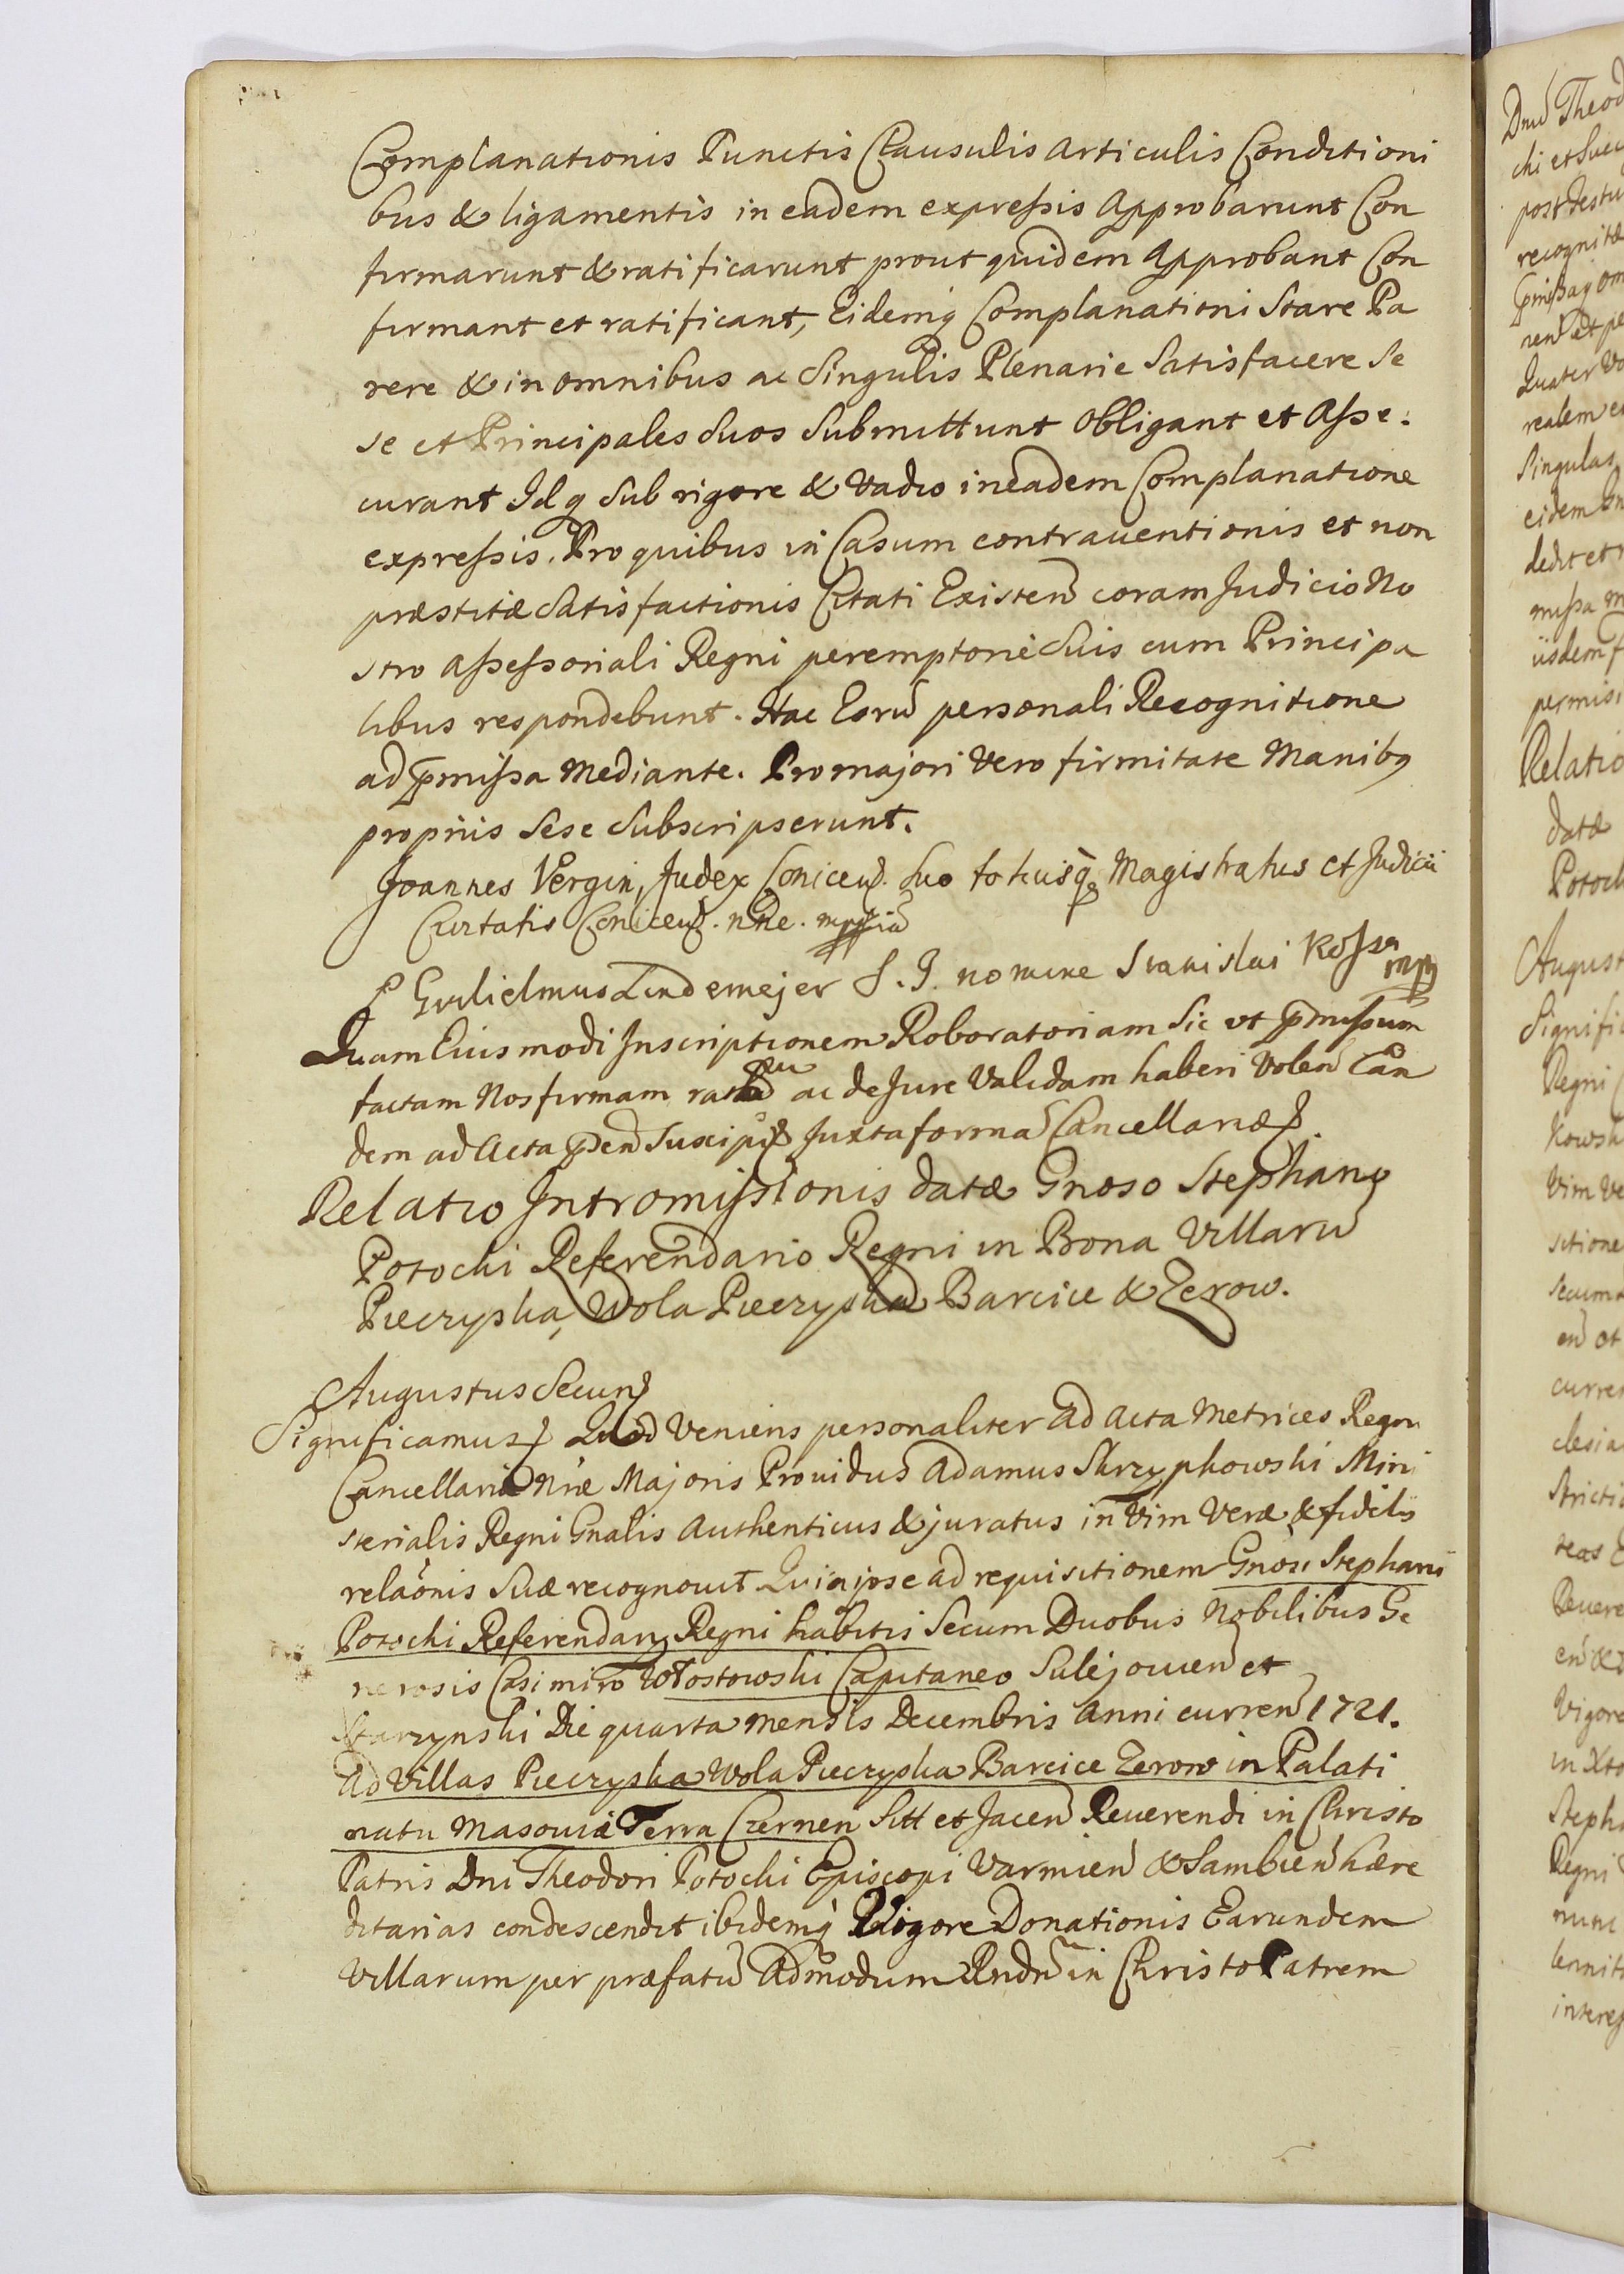 Complanationis Punctis Clausulis Articulis Conditioni
bus & ligamentis in eadem expressis Approbarunt Con
firmarunt & ratificarunt prout quidem Approbant Con
firmant et ratificant, Eidemq Complanationi Stare Pa
rere & in omnibus ac Singulis Plenarie Satisfacere Se
se et Principales Suos Submittunt Obligant et Asse.
curant Idq Sub rigore & Vadio in eadem Complanatione
expressis. Pro quibus in Casum contraventionis et non
præstitæ Satisfactionis Citati Existen coram Judicio No
stro Assessoriali Regni peremptorie Suis cum Principa
libus respondebunt. Hac Eorū personali Recognitione
ad pmissa Mediante. Pro majori Vero firmitate Manibq
propriis Sese Subscripserunt.
Joannes Vergin, Judex Conicens. Suo totiusq Magistratus et Judicii
Civitatis Conicens. nne. mppria
P Guilielmus Lindemejer S.J. nomine Stanislai Kossa mpp
Quam Eiusmodi Inscriptionem Roboratoriam Sic ut pmissum
factam Nos firmam ratam ac de Jure Validam haberi Volen Ean
dem ad Acta pden Suscipi Juxta formā Cancellariæ
Relatio Intromissionis datæ Gnoso Stephano
Potocki Referendario Regni in Bona Villarū
Pieczyska, Wola Pieczyska Barcice & Zerow.
Augustus Secun
Significamus Quod Veniens personaliter ad Acta Metrices Regni
Cancellariæ Nræ Majoris Providus Adamus Skrzypkowski Mini
sterialis Regni Gnalis Authenticus & juratus in Vim Veræ & fidelis
relaōnis Suæ recognovit Quia ipse ad requisitionem Gnosi Stephani
Potocki Referendarij Regni habitis Secum Duobus Nobilibus Ge
nerosis Casimiro Włostowski Capitaneo Sulejovien et
Starzynski Die quarta mensis Decembris Anni curren 1721.
Ad Villas Pieczyska Wola Pieczyska Barcice Zerow in Palati
natu Masoviæ Terra Czernen Sitt et Jacen Reverendi in Christo
Patris Dni Theodori Potocki Episcopi Varmien & Sambien hære
ditarias condescendit ibidemq Vigore Donationis Earundem
Villarum per præfatū Admodum Rndū in Christo Patrem